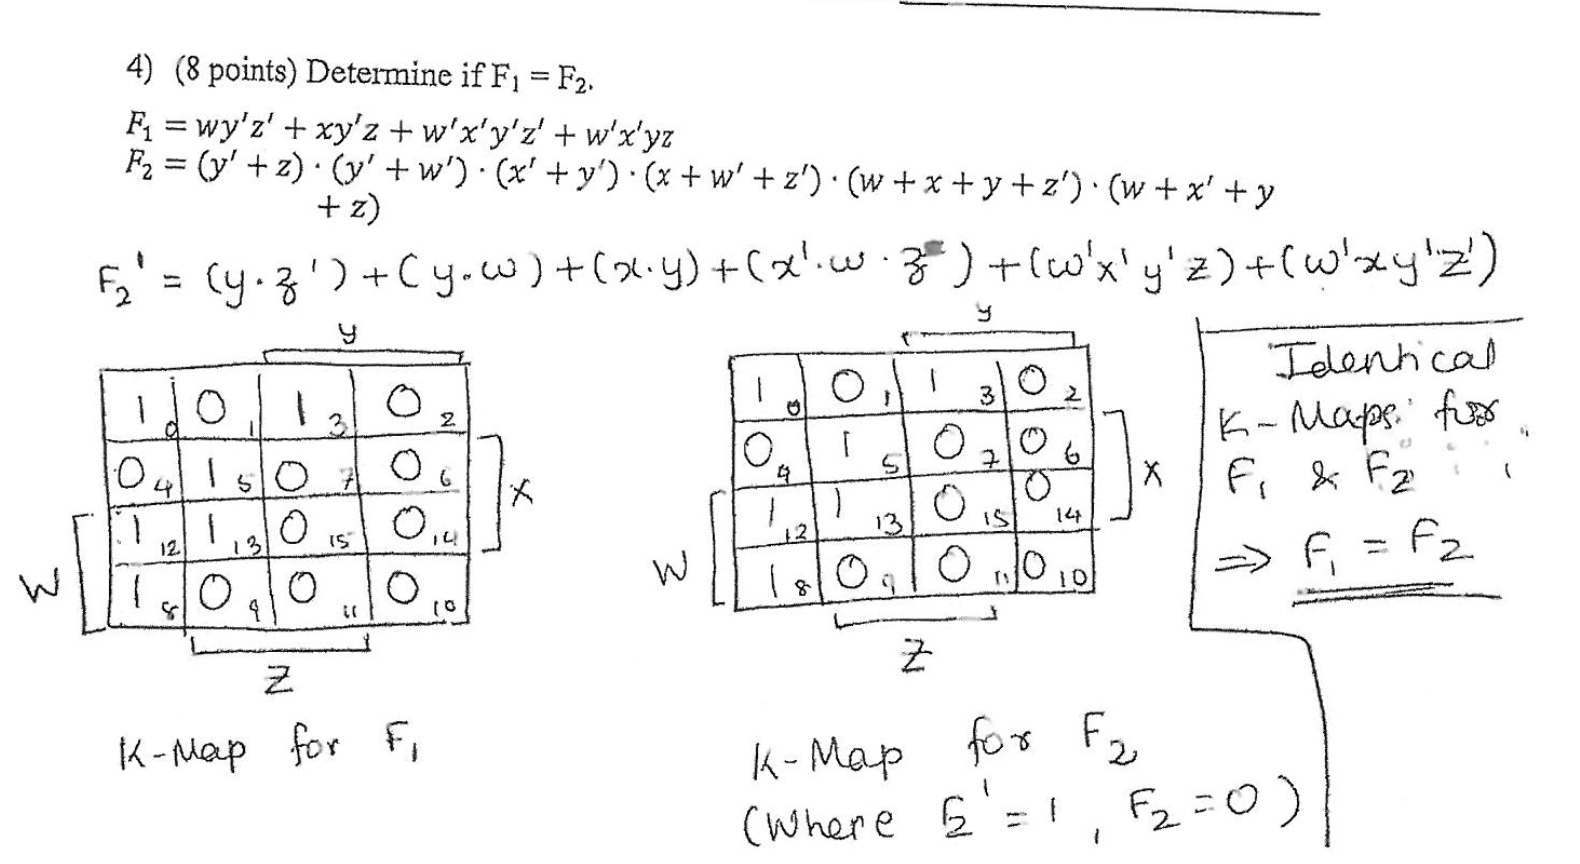 4) (8 points) Determine if F₁ = F₂.
F₁ = wy'z' + xy'z + w'x'y'z' + w'x'yz
F₂ = (y' + z) · (y' + w') · (x' + y') · (x + w' + z') · (w + x + y + z') · (w + x' + y
+ z)
F₂' = (y·z') + (y·w) + (x·y) + (x'·w·z) + (w'x'y'z) + (w'xy'z')
y
1 0 0 1 1 3 0 2
0 4 1 5 0 7 0 6
x
1 12 1 13 0 15 0 14
W
1 8 0 9 0 11 0 10
Z
K-Map for F₁
y
1 0 0 1 1 3 0 2
0 4 1 5 0 7 0 6
x
1 12 1 13 0 15 0 14
W
1 8 0 9 0 11 0 10
Z
K-Map for F₂
(Where F₂' = 1, F₂ = 0)
Identical
K-Maps for
F₁ & F₂
⇒ F₁ = F₂